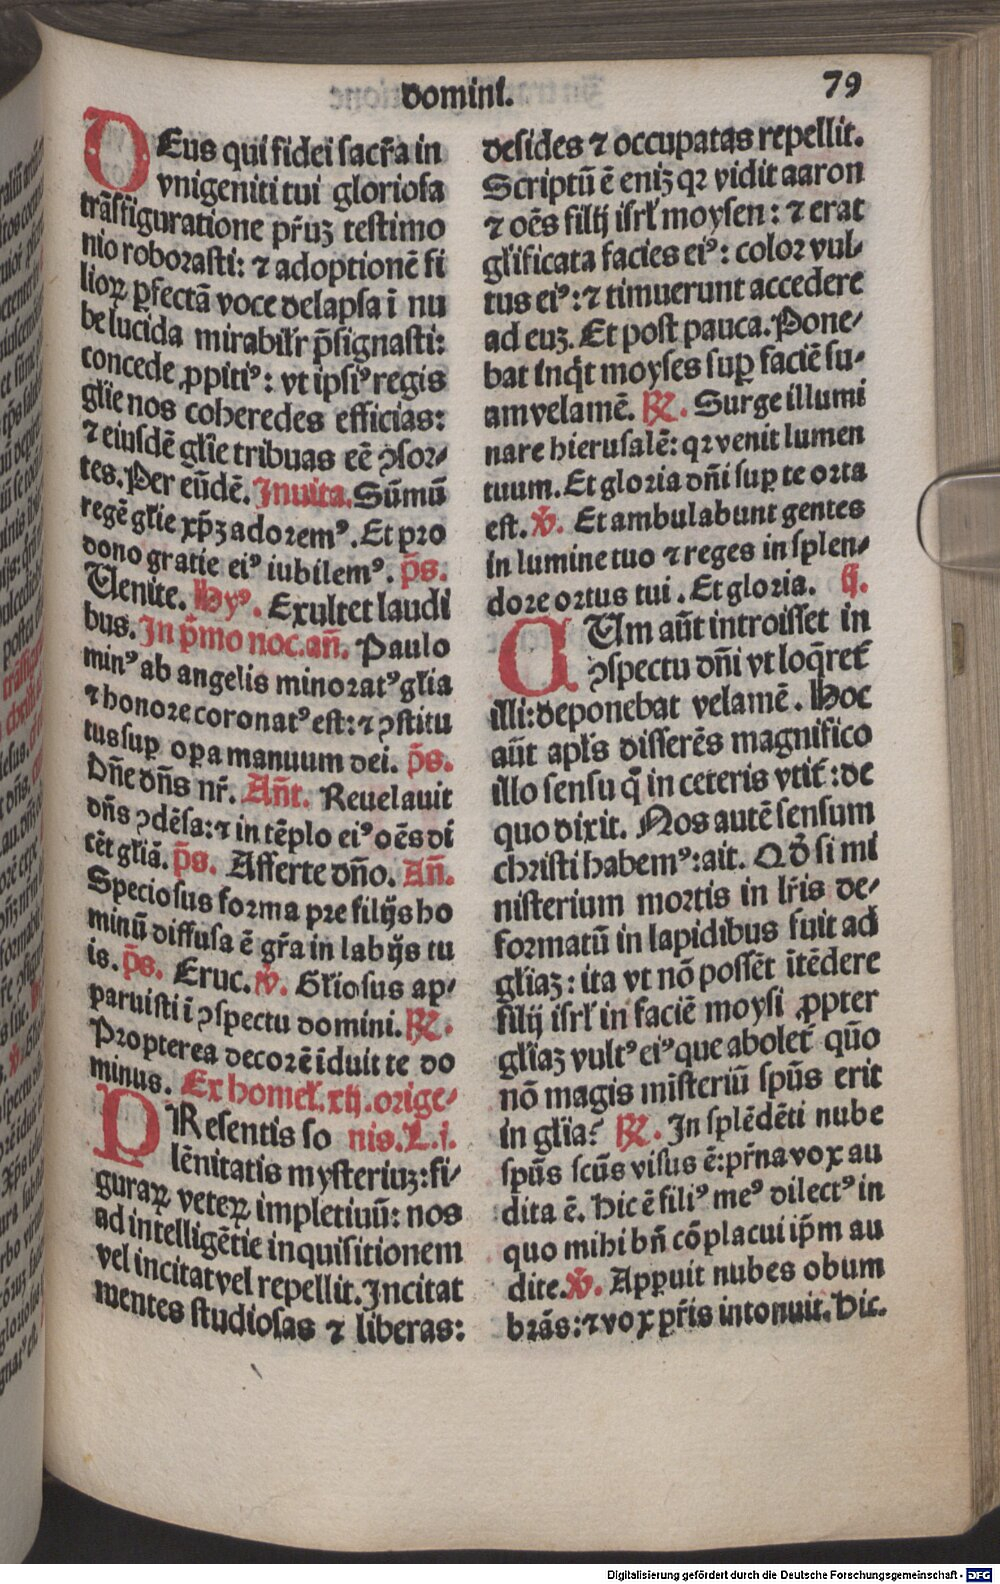 domini.
79
DEus qui fidei sacr̄a in
vnigeniti tui gloriosa
trāsfiguratione pr̄uꝫ testimo
nio roborasti: ⁊ adoptionē fi
lioꝝ ꝑfectā voce delapsa ī nu
be lucida mirabilr̄ p̄signasti:
concede ꝓpitiꝰ: vt ipsiꝰ regis
gl̄ie nos coheredes efficias:
⁊ eiusdē gl̄ie tribuas eē ꝯsor-
tes. Per eūdē. Inuita. Sūmū
regē gl̄ie xp̄ꝫ adoremꝰ. Et pro
dono gratie eiꝰ iubilemꝰ. p̄s.
Uenite. Hyꝰ. Exultet laudi
bus. In p̄mo noc. an̄. Paulo
minꝰ ab angelis minoratꝰ gl̄ia
⁊ honore coronatꝰ est: ⁊ ꝯstitu
tus suꝑ opera manuum dei. p̄s.
Dn̄e dn̄s nr̄. An̄t. Reuelauit
dn̄s ꝯdēsa: ⁊ in tēplo eiꝰ oēs di
cēt gl̄iā. p̄s. Afferte dn̄o. An̄.
Speciosus forma pre filijs ho
minū diffusa ē gr̄a in labijs tu
is. p̄s. Eruc. ℣. Gl̄iosus ap-
paruisti ī ꝯspectu domini. ℟.
Propterea decorē īduit te do
minus. Ex homel. xij. orige-
PResentis so nis. L. i.
lēnitatis mysteriuꝫ: fi-
guraꝝ veteꝝ impletiuū: nos
ad intelligētie inquisitionem
vel incitat vel repellit. Incitat
mentes studiosas ⁊ liberas:
desides ⁊ occupatas repellit.
Scriptū ē eniꝫ qꝛ vidit aaron
⁊ oēs filij isrl̄ moysen: ⁊ erat
gl̄ificata facies eiꝰ: color vul-
tus eiꝰ: ⁊ timuerunt accedere
ad euꝫ. Et post pauca. Pone-
bat inq̄t moyses suꝑ faciē su-
am velamē. ℟. Surge illumi
nare hierusalē: qꝛ venit lumen
tuum. Et gloria dn̄i suꝑ te orta
est. ℣. Et ambulabunt gentes
in lumine tuo ⁊ reges in splen-
dore ortus tui. Et gloria. ij.
CUm aūt introisset in
ꝯspectu dn̄i vt loq̄ret̄
illi: deponebat velamē. Hoc
aūt apl̄s disserēs magnifico
illo sensu q̄ in ceteris vtit̄: de
quo dixit. Nos autē sensum
christi habemꝰ: ait. Qd̄ si mi
nisterium mortis in lr̄is de-
formatū in lapidibus fuit ad
gl̄iaꝫ: ita vt nō possēt ītēdere
filij isrl̄ in faciē moysi ꝓpter
gl̄iaꝫ vultꝰ eiꝰ que abolet̄ quō
nō magis misteriū spūs erit
in gl̄ia? ℟. In splēdēti nube
spūs scūs visus ē: pr̄na vox au
dita ē. Hic ē filiꝰ meꝰ dilectꝰ in
quo mihi bn̄ cōplacui ip̄m au
dite. ℣. Apꝑuit nubes obum
brās: ⁊ vox pr̄is intonuit. Hic.
Digitalisierung gefördert durch die Deutsche Forschungsgemeinschaft - DFG